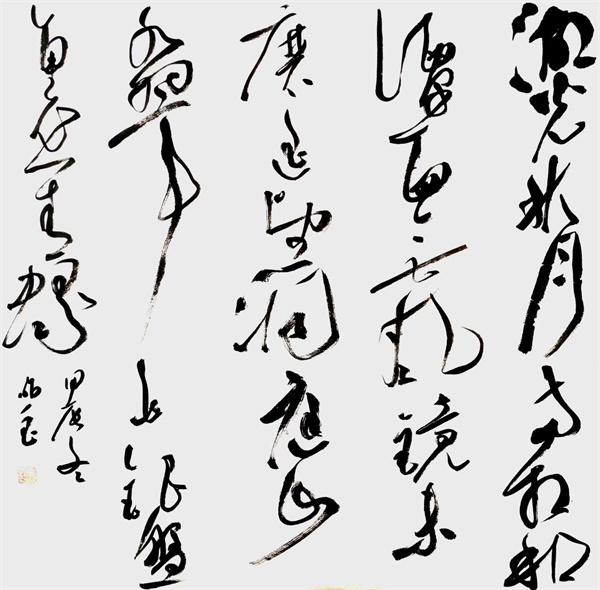 湖光秋月兩相和
潭面无風鏡未
磨遥望洞庭山
水翠白銀盤
里一青螺
甲辰冬